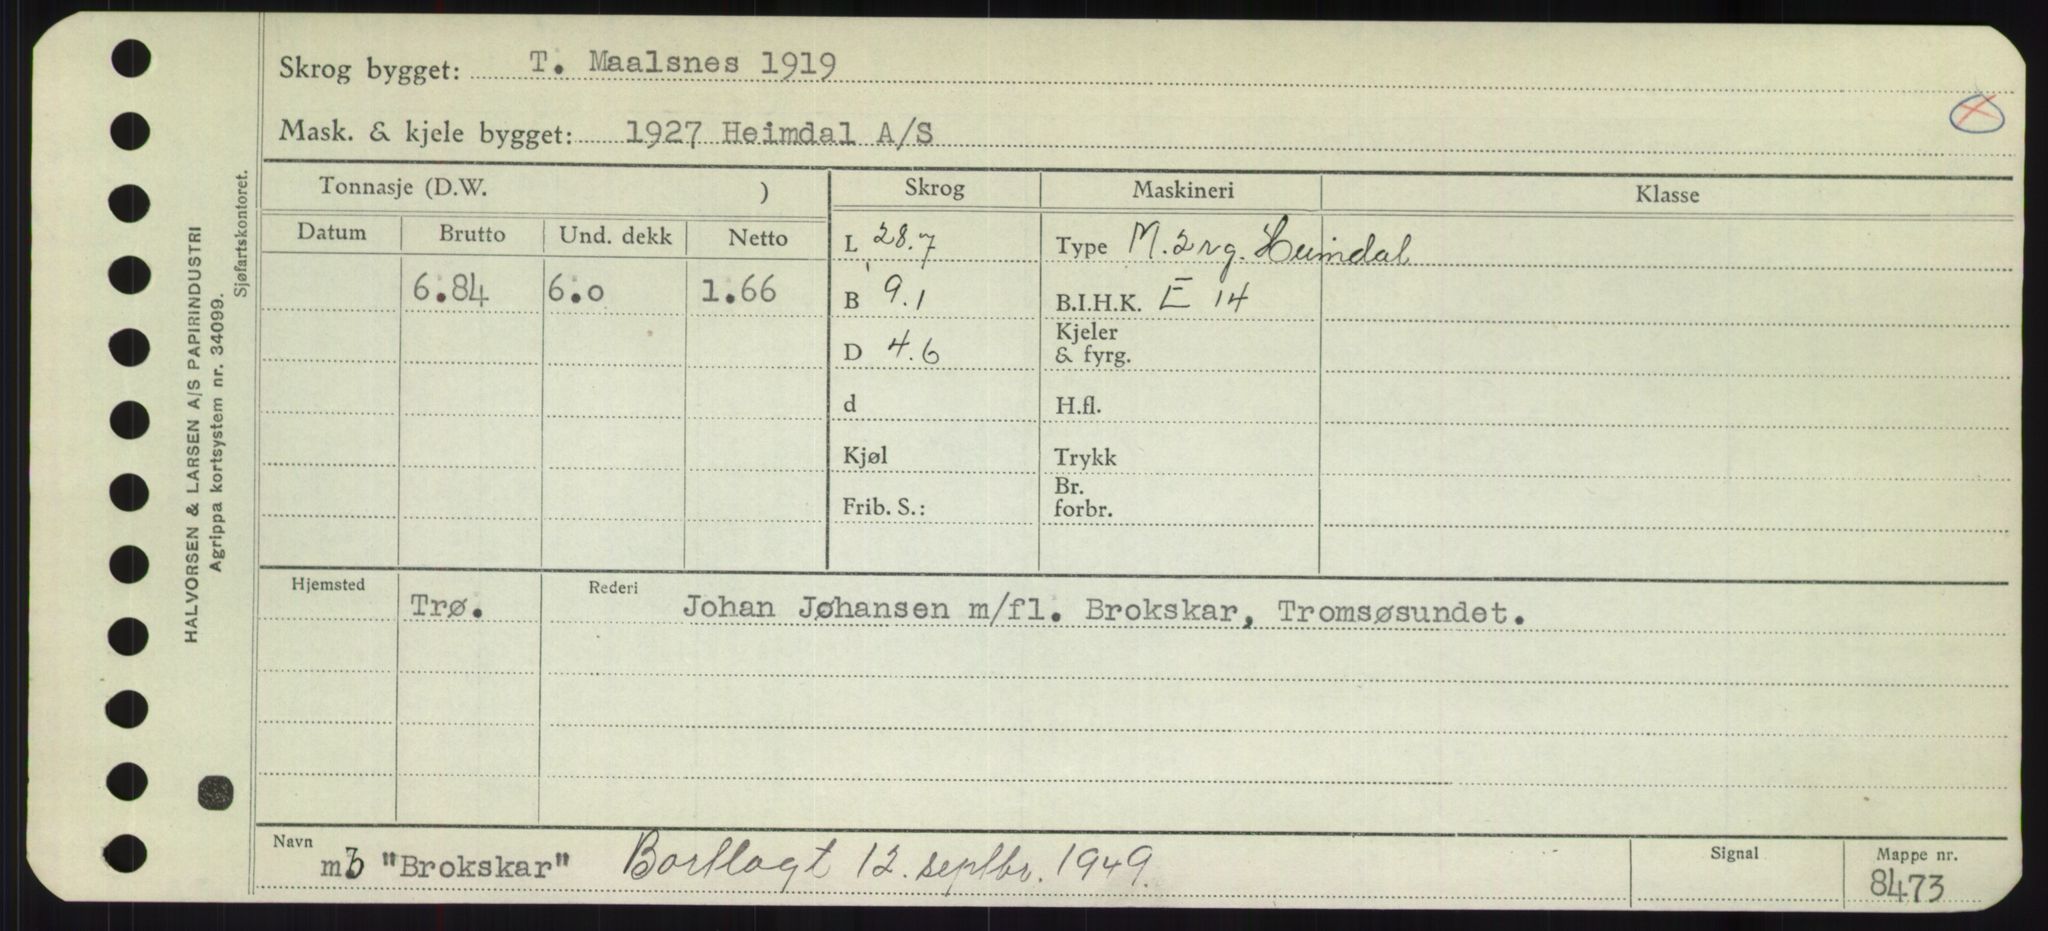 HALVORSEN & LARSEN A/S PAPIRINDUSTRI
Agrippa kortsystem nr. 34099.
Sjøfartskontoret.
Skrog bygget: T. Maalsnes 1919
Mask. & kjele bygget: 1927 Heimdal A/S
Tonnasje (D.W. ) Skrog Maskineri Klasse
Datum Brutto Und. dekk Netto
L 28.7 Type M. 2 rg. Heimdal
6.84 6.0 1.66 B 9.1 B.I.H.K. E 14
D 4.6 Kjeler
& fyrg.
d H.fl.
Kjøl Trykk
Frib. S.: Br.
forbr.
Hjemsted Trø. Rederi Johan Johansen m/fl. Brokskar, Tromsøsundet.
Navn Signal Mappe nr.
"Brokskar" Bortlagt 12. septbr. 1949. 8473